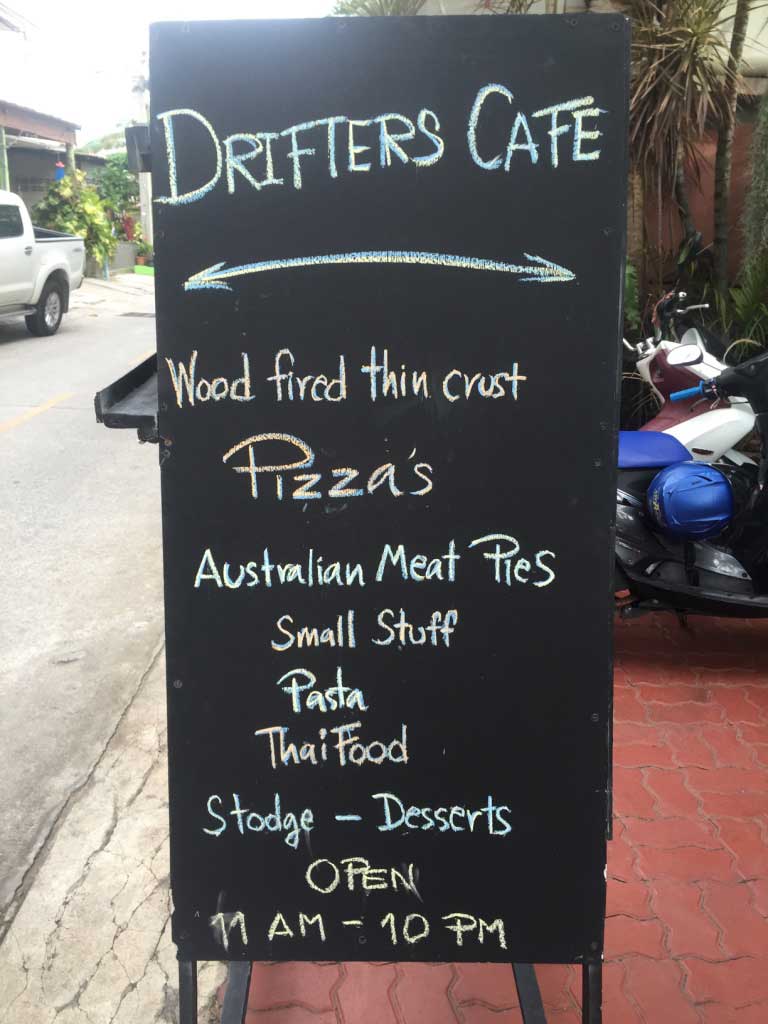 DRIFTERS CAFE
Wood fired thin crust
Pizza's
Australian Meat Pies
Small Stuff
Pasta
Thai Food
Stodge - Desserts
OPEN
11 AM - 10 PM